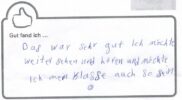 Gut fand ich ...
Das war sehr gut Ich möchte
weiter sehen und hören und möchte
ich mein Klasse auch so sein